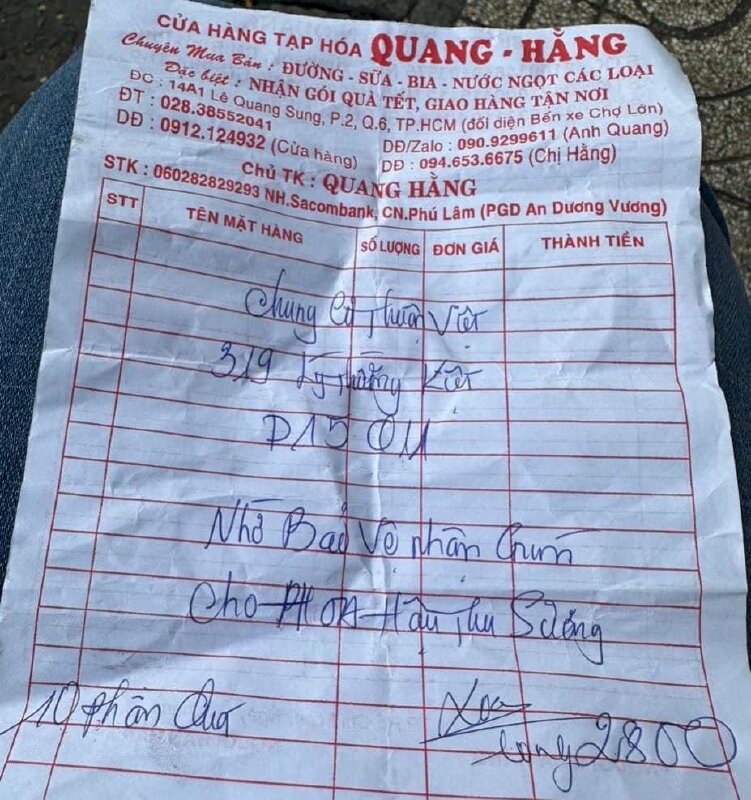 CỬA HÀNG TẠP HÓA QUANG - HẰNG
Chuyên Mua Bán : ĐƯỜNG - SỮA - BIA - NƯỚC NGỌT CÁC LOẠI
Đặc biệt : NHẬN GÓI QUÀ TẾT, GIAO HÀNG TẬN NƠI
ĐC : 14A1 Lê Quang Sung, P.2, Q.6, TP.HCM (đối diện Bến xe Chợ Lớn)
ĐT : 028.38552041
DĐ/Zalo : 090.9299611 (Anh Quang)
DĐ : 0912.124932 (Cửa hàng)
DĐ : 094.653.6675 (Chị Hằng)
Chủ TK : QUANG HẰNG
STK : 060282829293 NH.Sacombank, CN.Phú Lâm (PGD An Dương Vương)
STT TÊN MẶT HÀNG SỐ LƯỢNG ĐƠN GIÁ THÀNH TIỀN
Chung Cư Thuận Việt
319 Lý Thường Kiệt
P15 Q11
Nhờ Bảo Vệ nhận Chung
Cho Hậu Thu Sương
10 phần Quà
2800